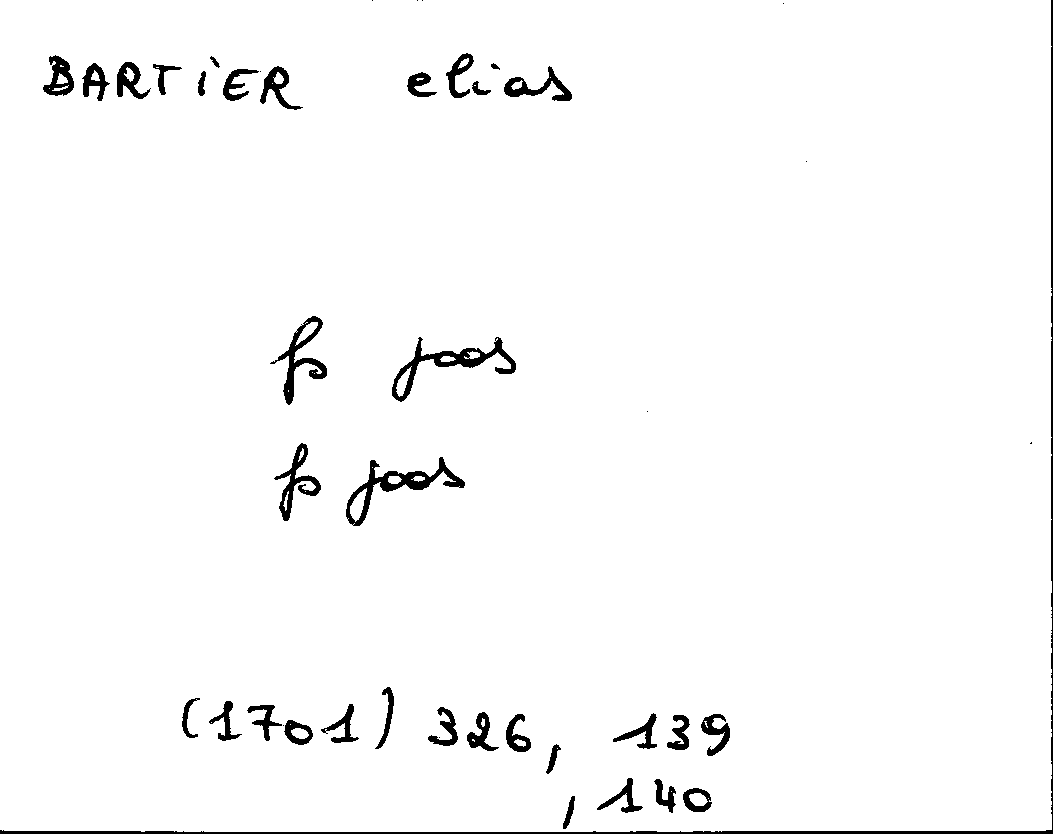 BARTiER elias
fs joos
fs joos
(1701) 326, 139
, 140